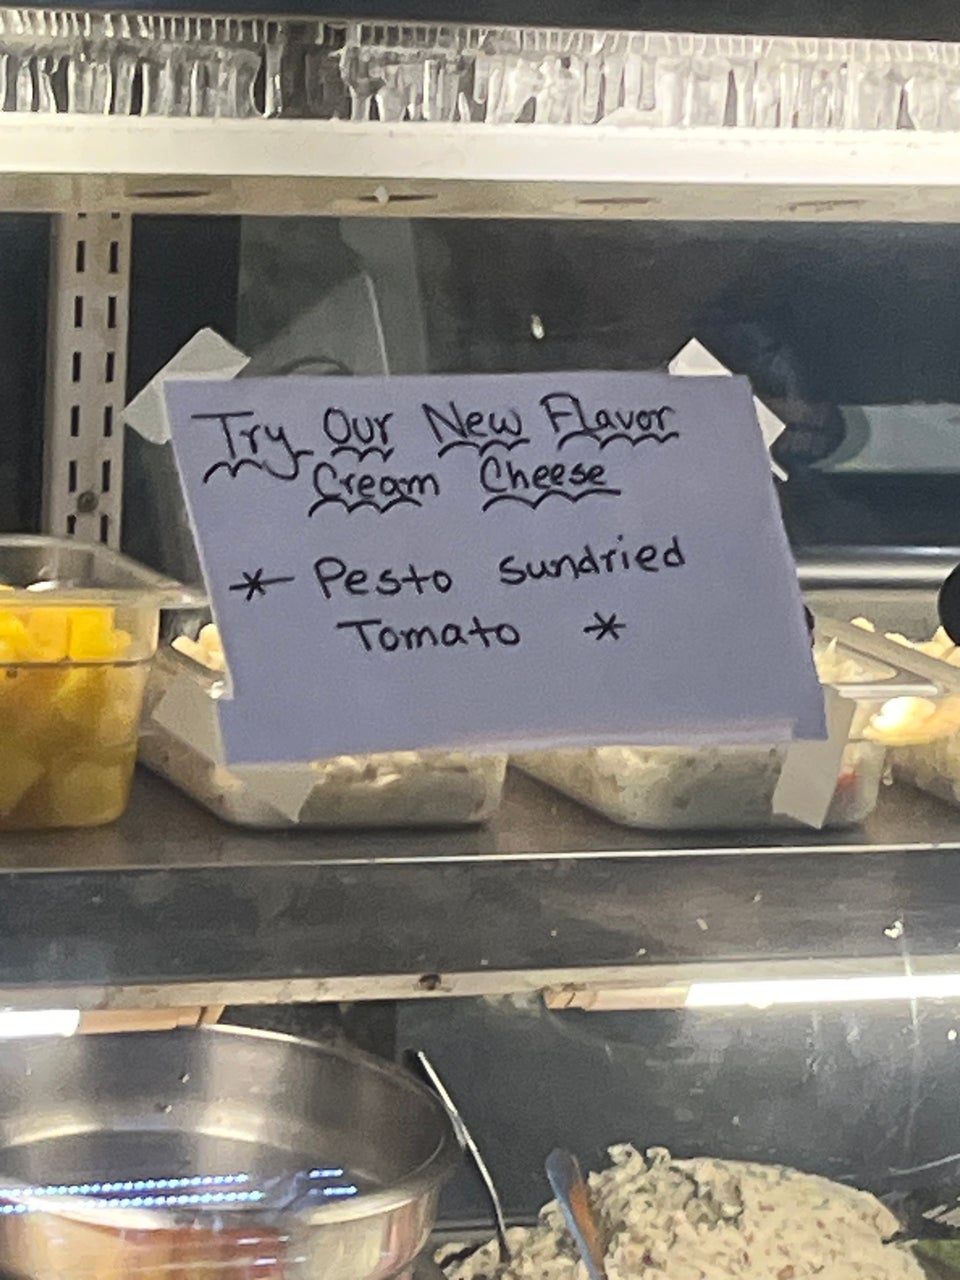 Try Our New Flavor
Cream Cheese
* Pesto sundried
Tomato *